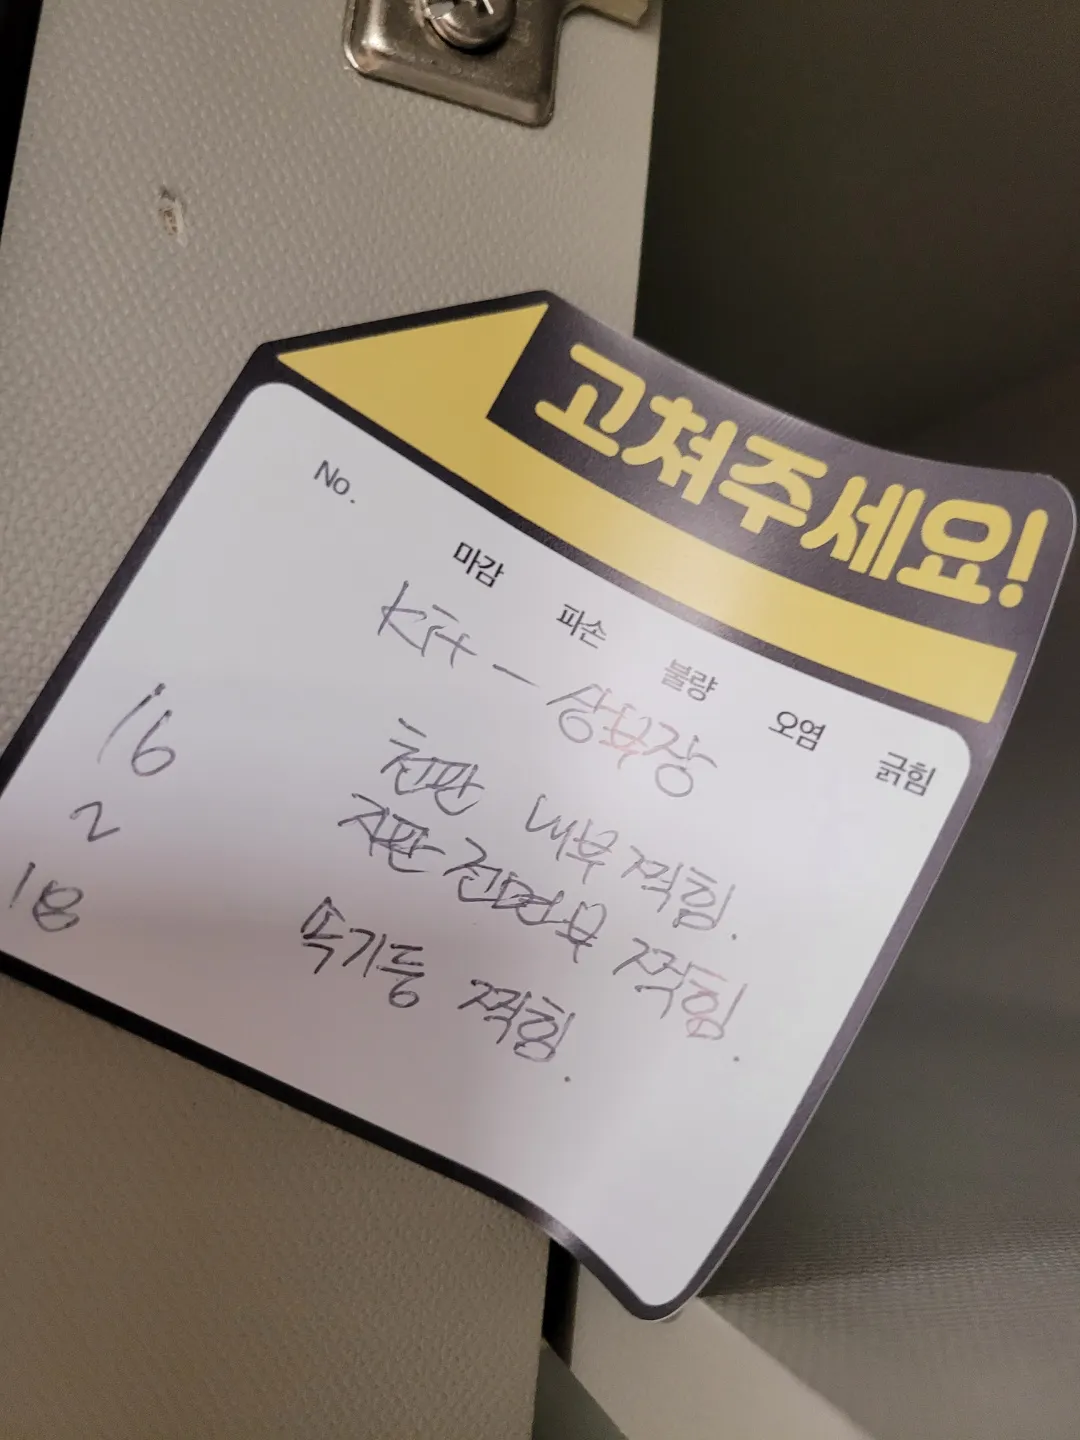 고쳐주세요!
No.
마감 파손 불량 오염 긁힘
Kit - 상부장
16 천판 내부 찍힘.
2 지판 전면부 찍힘.
18 목기둥 찍힘.